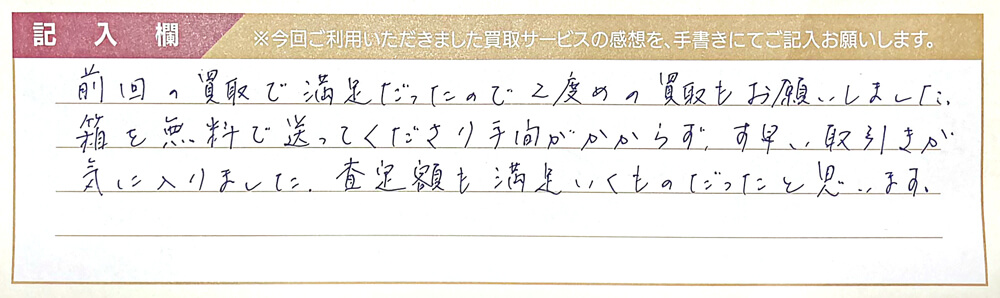 記入欄
※今回ご利用いただきました買取サービスの感想を、手書きにてご記入お願いします。
前回の買取で満足だったので2度めの買取もお願いしました。
箱を無料で送ってくださり手間がかからず、す早い取引きが
気に入りました。査定額も満足いくものだったと思います。